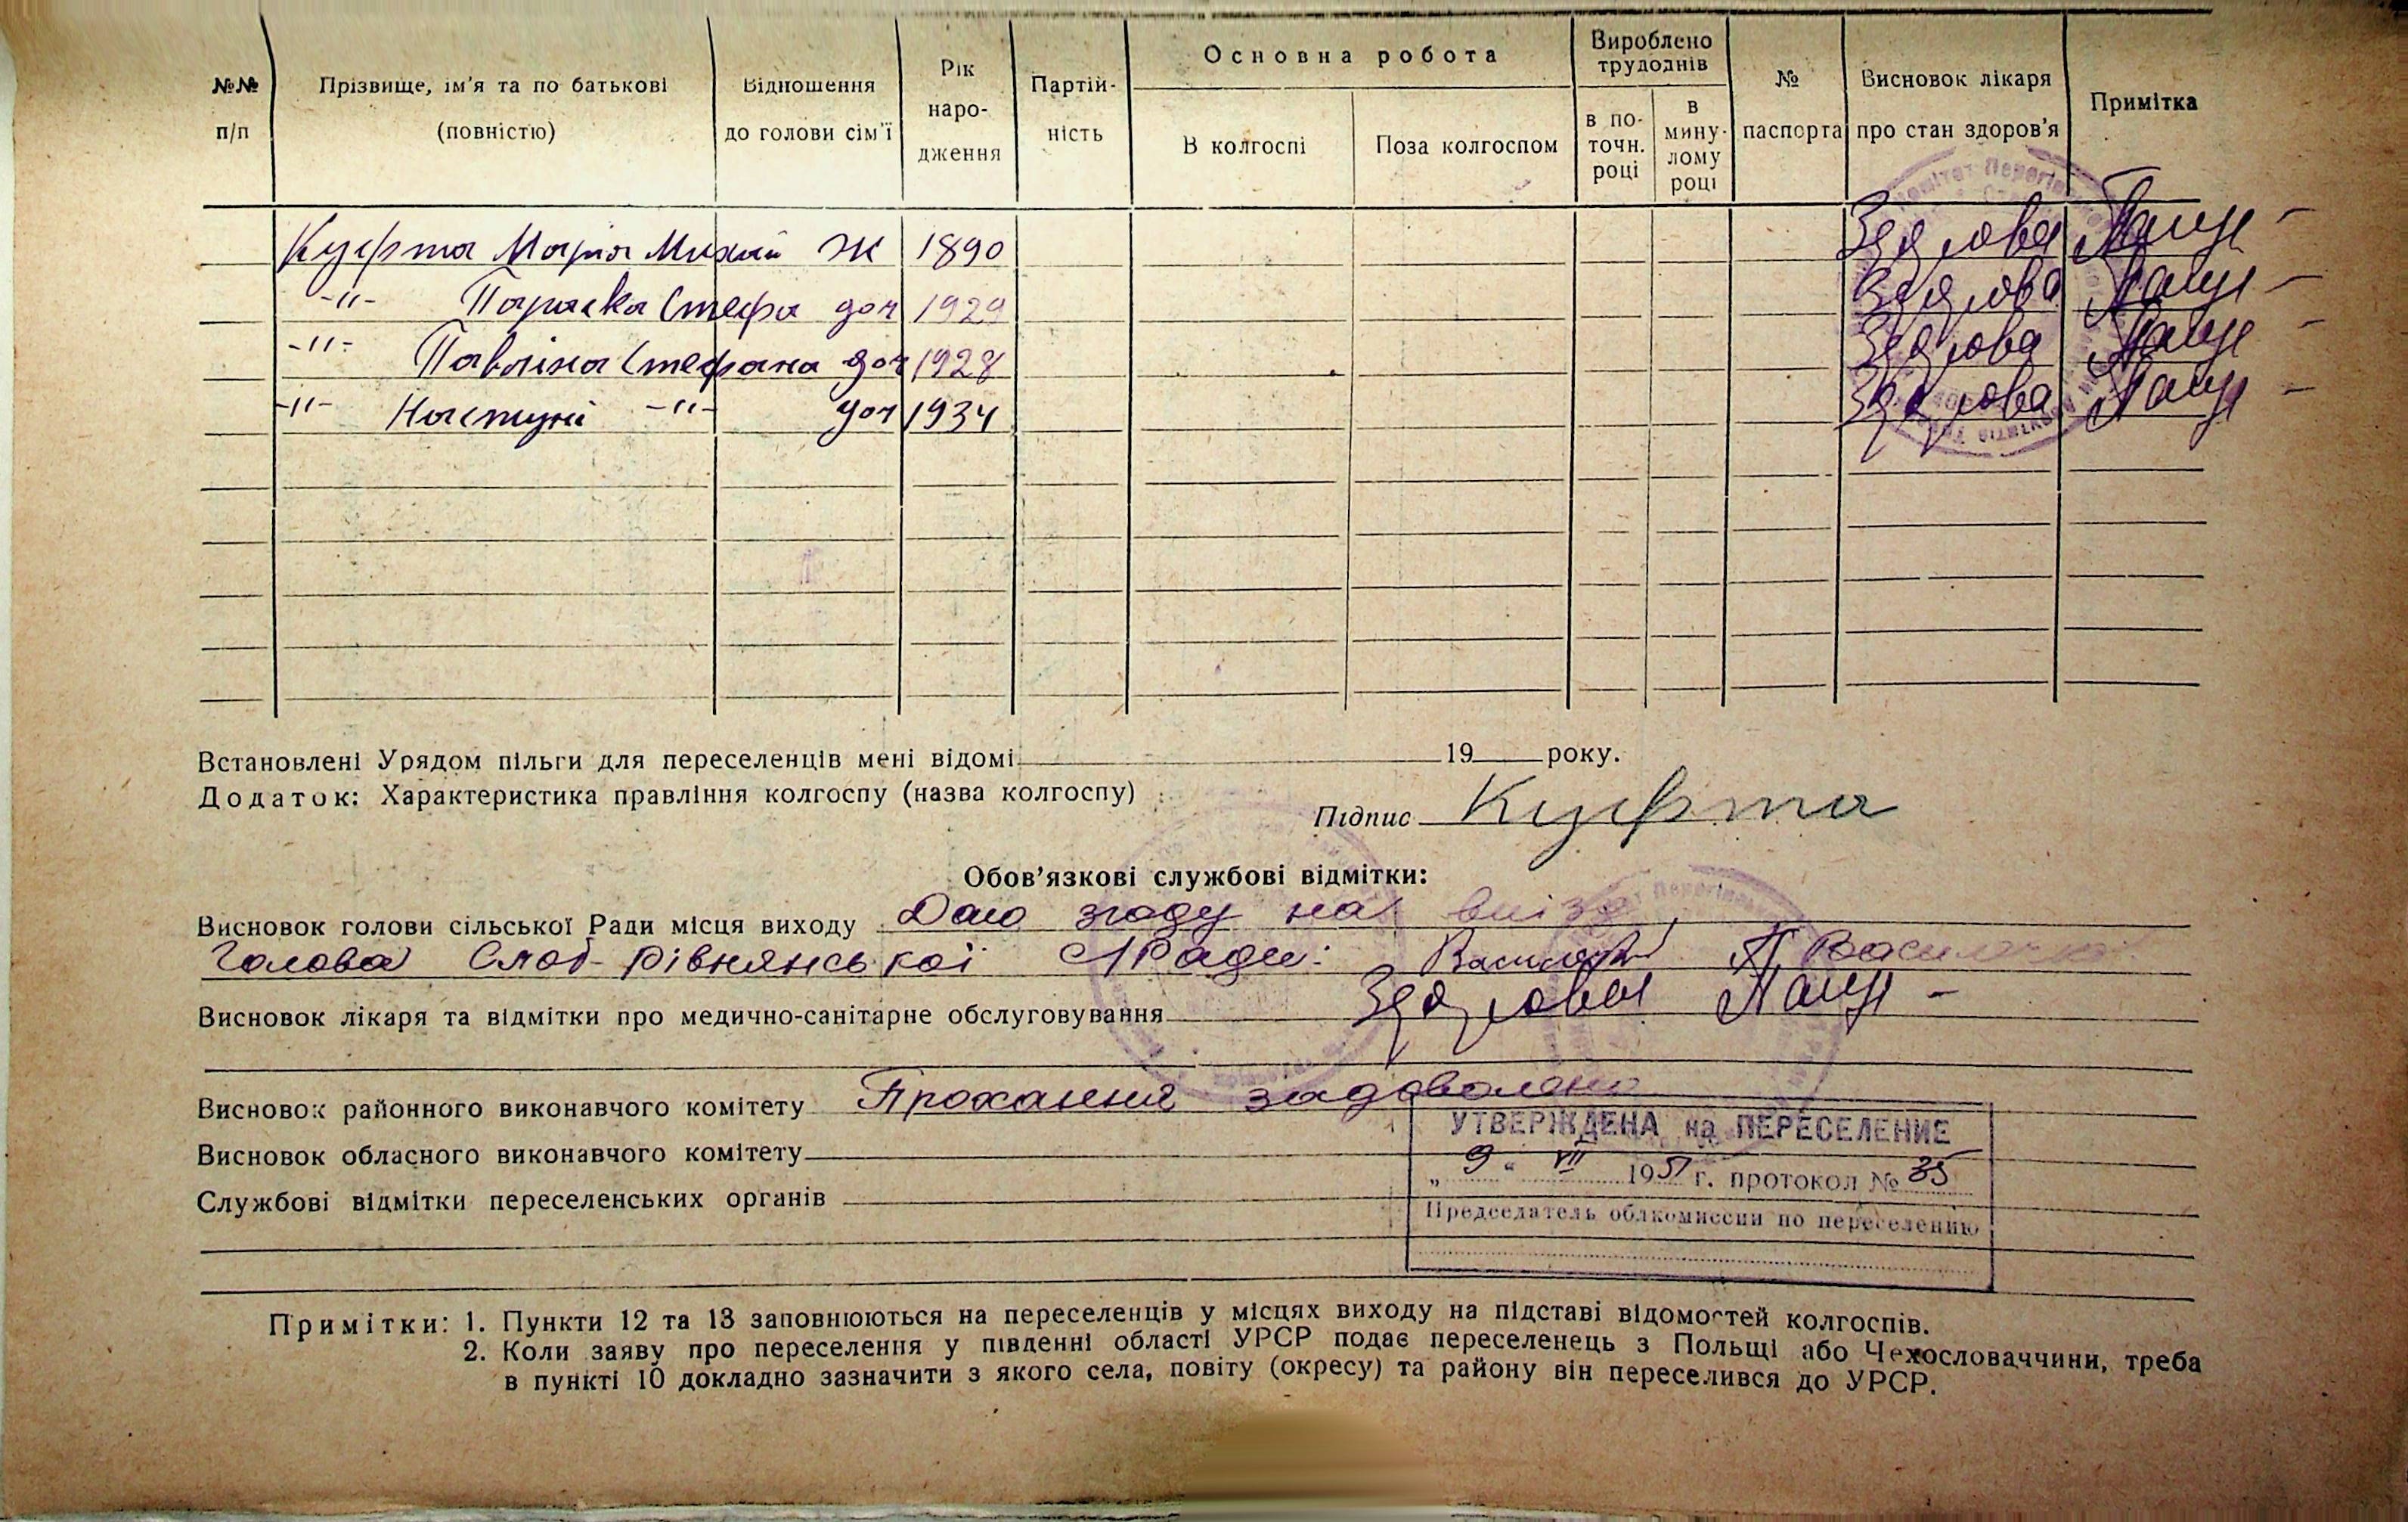 №№ п/п
Прізвище, ім'я та по батькові (повністю)
Відношення до голови сім'ї
Рік наро-дження
Партій-ність
Основна робота
В колгоспі
Поза колгоспом
Вироблено трудоднів
в по-точн. році
в мину-лому році
№ паспорта
Висновок лікаря про стан здоров'я
Примітка
Куфта Марія Михай ж 1890 Здорова
-"- Параска Стефа доч 1929 Здорова
-"- Павліна Стефана доч 1928 Здорова
-"- Настуні -"- доч 1934 Здорова
Встановлені Урядом пільги для переселенців мені відомі 19 року.
Додаток: Характеристика правління колгоспу (назва колгоспу)
Підпис Куфта
Обов'язкові службові відмітки:
Висновок голови сільської Ради місця виходу Даю згоду на виїзд
Голова Слоб-Рівнянської с/Ради:
Висновок лікаря та відмітки про медично-санітарне обслуговування Здорова
Висновок районного виконавчого комітету Прохання задоволено
Висновок обласного виконавчого комітету
Службові відмітки переселенських органів
УТВЕРЖДЕНА на ПЕРЕСЕЛЕНИЕ
„ 9 " VII 1951 г. протокол № 35
Председатель облкомиссии по переселению
Примітки: 1. Пункти 12 та 13 заповнюються на переселенців у місцях виходу на підставі відомостей колгоспів.
2. Коли заяву про переселення у південні області УРСР подає переселенець з Польщі або Чехословаччини, треба
в пункті 10 докладно зазначити з якого села, повіту (окресу) та району він переселився до УРСР.